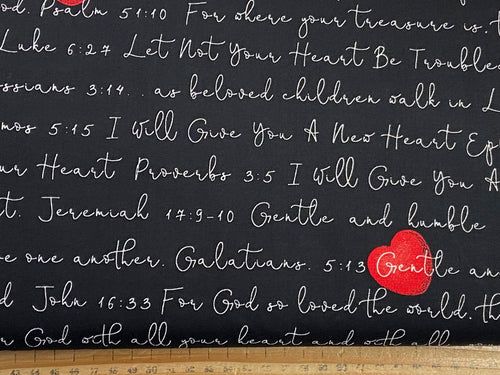 od. Psalm 51:10 For where your treasure is.
Luke 6:27 Let Not Your Heart Be Trouble
ssians 3:14.. as beloved children walk in L
mos 5:15 I Will Give You A New Heart
ur Heart Proverbs 3:5 I Will Give You A
t. Jeremiah 17:9-10 Gentle and humble
e one another. Galatians. 5:13 Gentle an
d John 16:33 For God so loved the world. th
r God with all your heart and with all